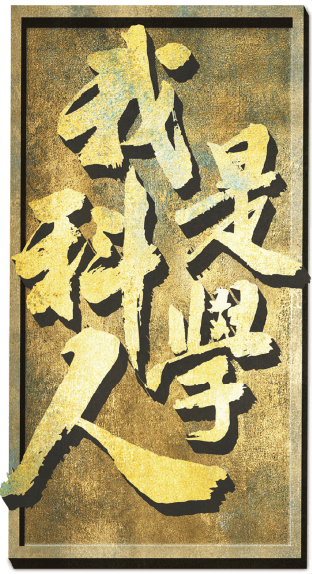 我是科學人